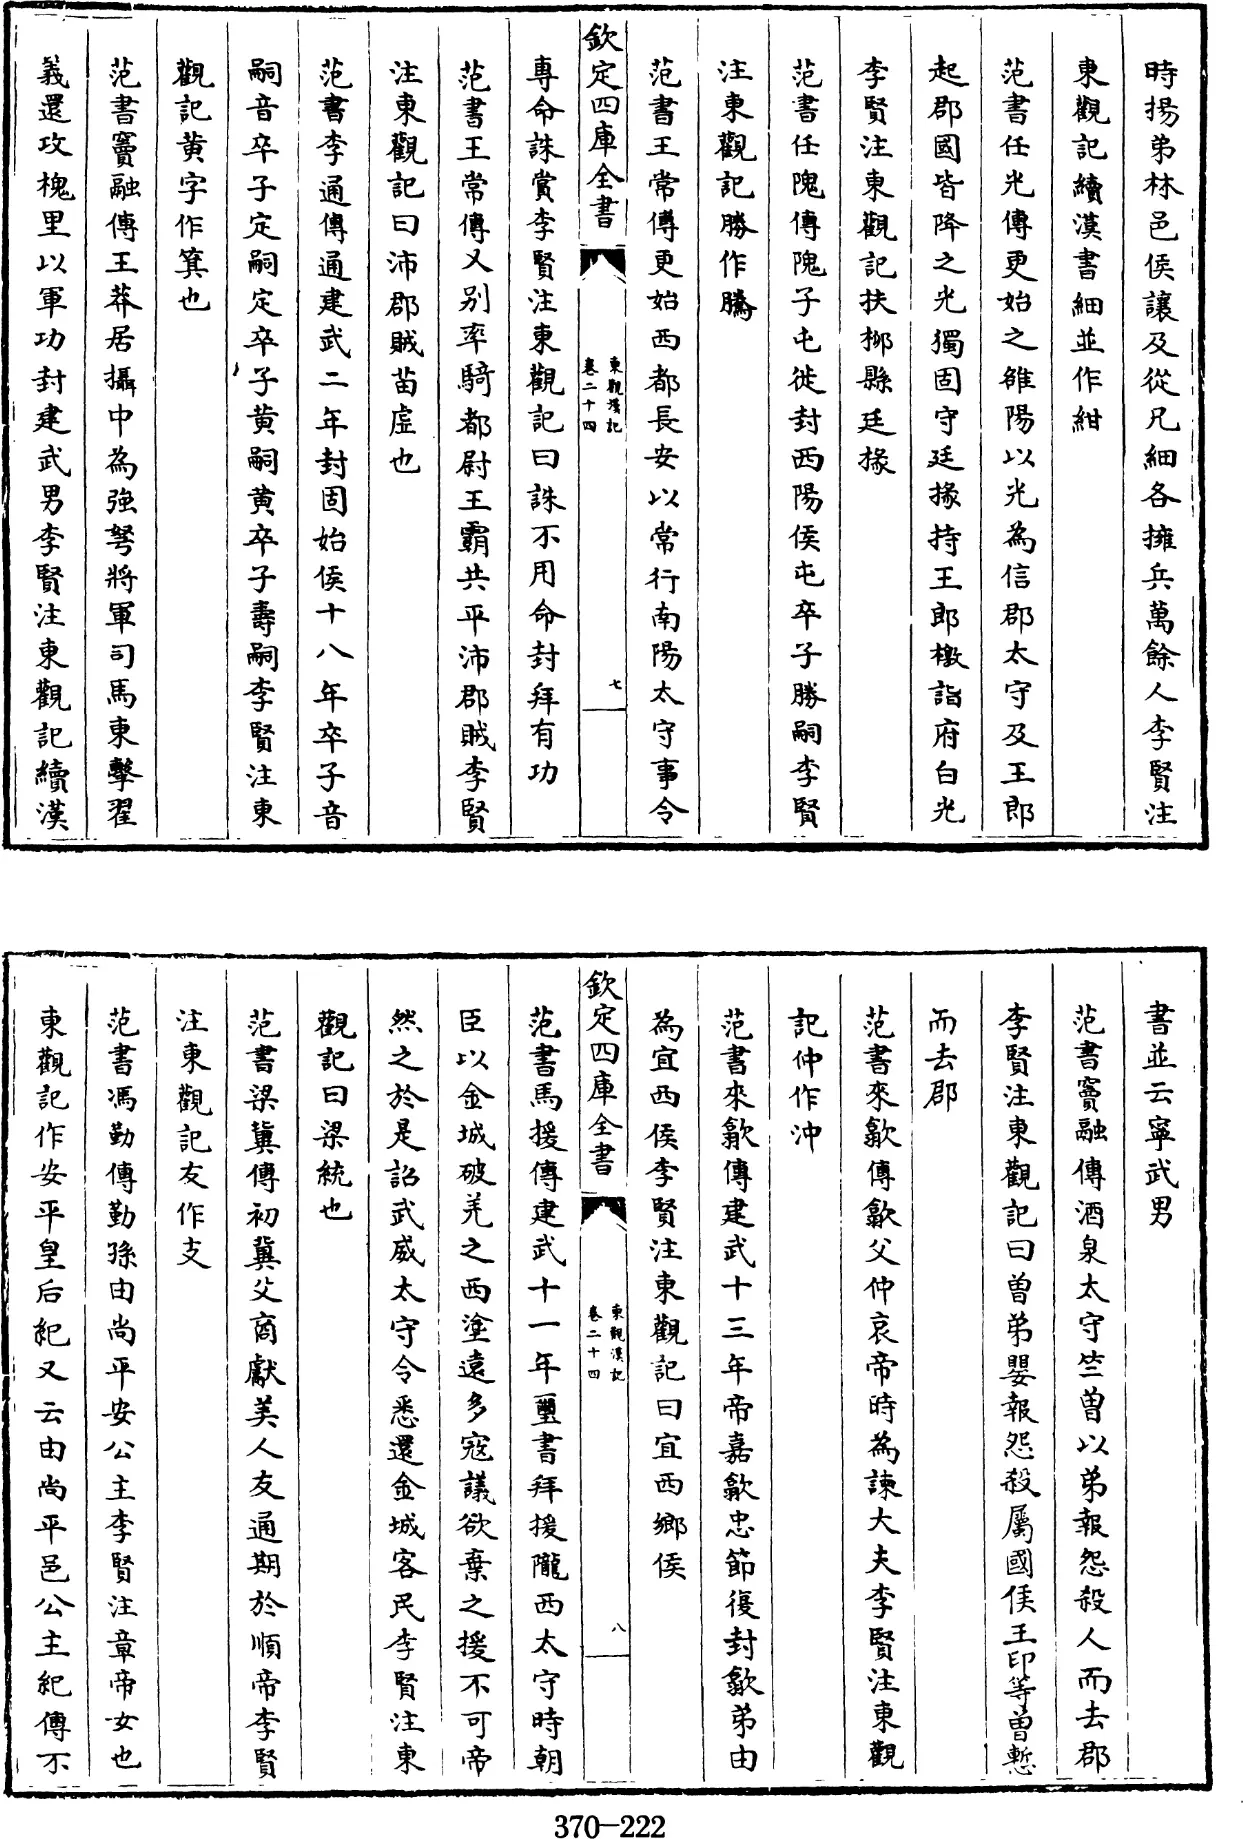 時揚弟林邑侯讓及從兄細各擁兵萬餘人李賢注
東觀記續漢書細並作紺
范書任光傳更始之雒陽以光為信郡太守及王郎
起郡國皆降之光獨固守廷掾持王郎檄詣府白光
李賢注東觀記扶柳縣廷掾
范書任隗傳隗子屯徙封西陽侯屯卒子勝嗣李賢
注東觀記勝作騰
范書王常傳更始西都長安以常行南陽太守事令
欽定四庫全書
東觀漢記
卷二十四
七
專命誅賞李賢注東觀記曰誅不用命封拜有功
范書王常傳又別率騎都尉王霸共平沛郡賊李賢
注東觀記曰沛郡賊苗虛也
范書李通傳通建武二年封固始侯十八年卒子音
嗣音卒子定嗣定卒子黄嗣黄卒子壽嗣李賢注東
觀記黄字作箕也
范書竇融傳王莽居攝中為強弩將軍司馬東擊翟
義還攻槐里以軍功封建武男李賢注東觀記續漢
書並云寧武男
范書竇融傳酒泉太守竺曽以弟報怨殺人而去郡
李賢注東觀記曰曽弟嬰報怨殺屬國侯王印等曽慙
而去郡
范書來歙傳歙父仲哀帝時為諫大夫李賢注東觀
記仲作沖
范書來歙傳建武十三年帝嘉歙忠節復封歙弟由
為宜西侯李賢注東觀記曰宜西鄉侯
欽定四庫全書
東觀漢記
卷二十四
八
范書馬援傳建武十一年璽書拜援隴西太守時朝
臣以金城破羌之西塗遠多寇議欲棄之援不可帝
然之於是詔武威太守令悉還金城客民李賢注東
觀記曰梁統也
范書梁冀傳初冀父商獻美人友通期於順帝李賢
注東觀記友作支
范書馮勤傳勤孫由尚平安公主李賢注章帝女也
東觀記作安平皇后紀又云由尚平邑公主紀傳不
370-222